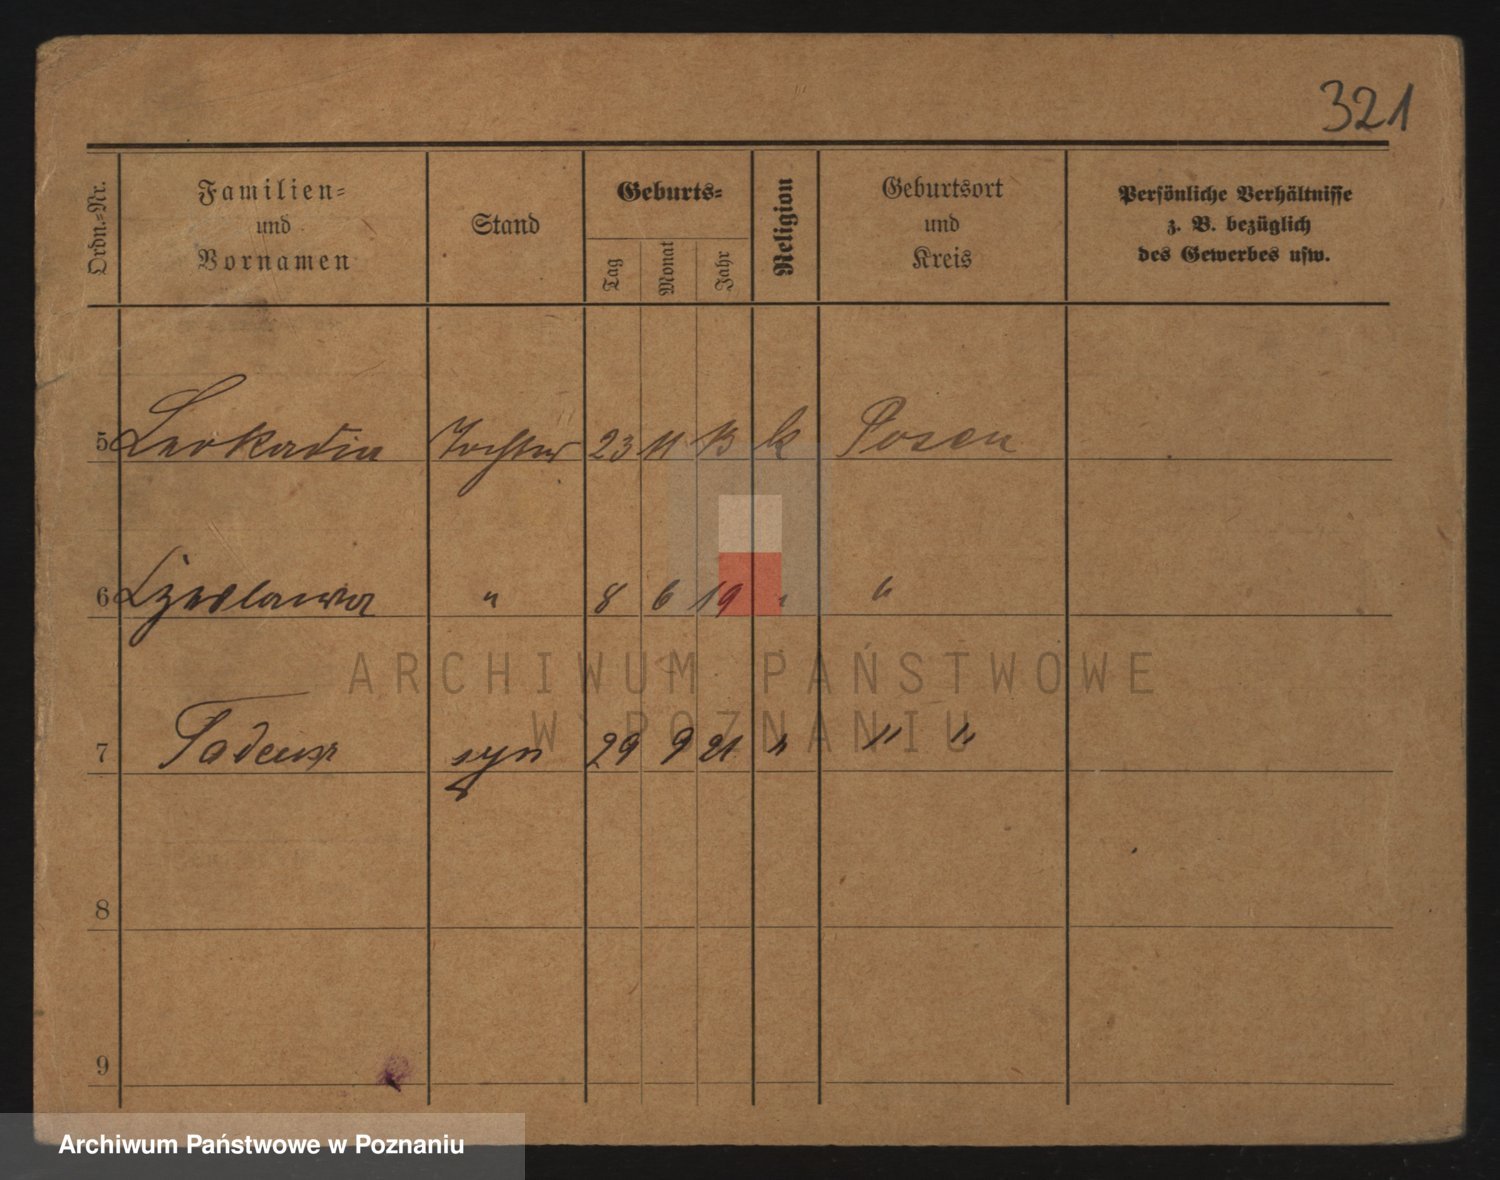 321
Ordn.=Nr.
Familien=
und
Vornamen
Stand
Geburts=
Tag
Monat
Jahr
Religion
Geburtsort
und
Kreis
Persönliche Verhältnisse
z. B. bezüglich
des Gewerbes usw.
5 Leokadia Tochter 23 11 13 k Posen
6 Czeslawa " 8 6 19 " "
7 Tadeusz syn 29 9 21 " " "
8
9
ARCHIWUM PAŃSTWOWE
W POZNANIU
Archiwum Państwowe w Poznaniu